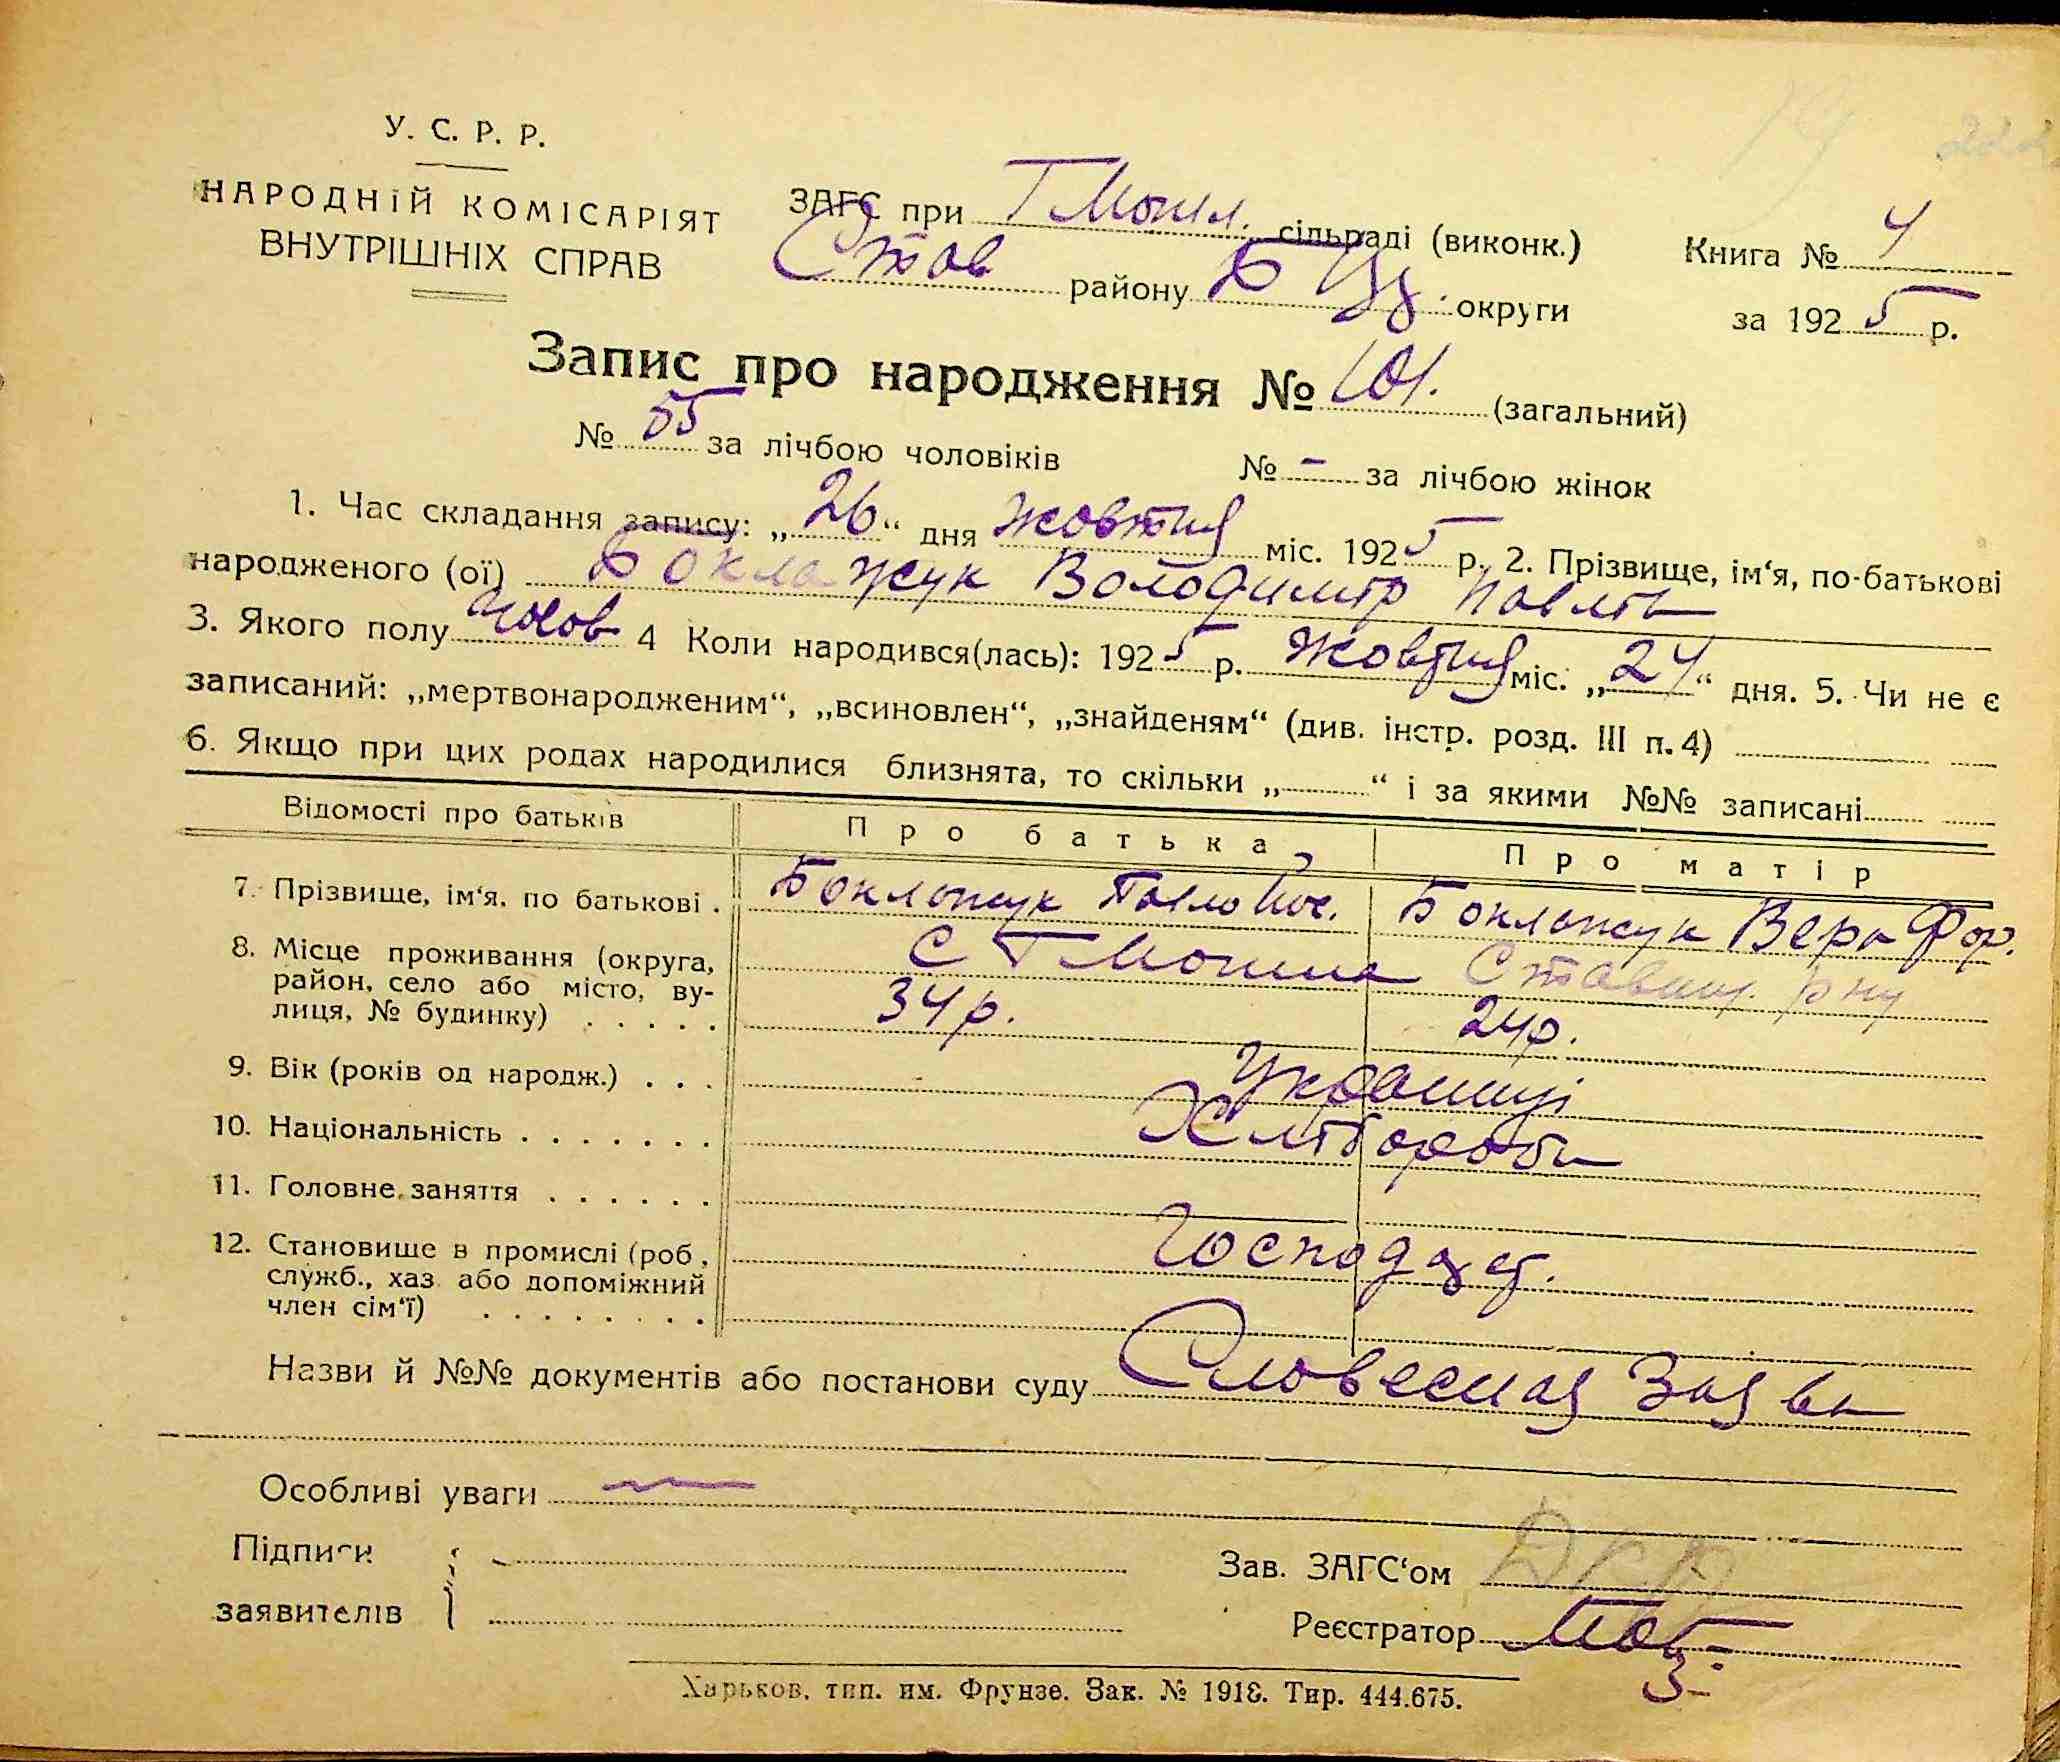 У. С. Р. Р.
НАРОДНІЙ КОМІСАРІЯТ
ВНУТРІШНІХ СПРАВ
ЗАГС при Г Могил. сільраді (виконк.)
Став району Б Ц округи
Книга № 4
за 1925 р.
Запис про народження № 101. (загальний)
№ 55 за лічбою чоловіків № - за лічбою жінок
1. Час складання запису: „26“ дня жовтня міс. 1925 р. 2. Прізвище, ім‘я, по-батькові
народженого (ої) Боклажук Володимир Павлів
3. Якого полу чолов 4 Коли народився(лась): 1925 р. жовтня міс. „24“ дня. 5. Чи не є
записаний: „мертвонародженим“, „всиновлен“, „знайденям“ (див. інстр. розд. III п. 4)
6. Якщо при цих родах народилися близнята, то скільки „ “ і за якими №№ записані
Відомості про батьків Про батька Про матір
7. Прізвище, ім‘я, по батькові . Боклажук Павло Йос. Боклажук Вера Фор.
8. Місце проживання (округа, район, село або місто, вулиця, № будинку) . . . . . С Г Могила Ставищ. р ну
34 р. 24 р.
9. Вік (років од народж.) . . . Українці
10. Національність . . . . . . . Хлібороби
11. Головне заняття . . . . . .
12. Становище в промислі (роб., служб., хаз. або допоміжний член сім‘ї) . . . . . . . . Господар.
Назви й №№ документів або постанови суду Словесная Заява
Особливі уваги —
Підписи
заявителів
Зав. ЗАГС‘ом
Реєстратор
Харьков, тип. им. Фрунзе. Зак. № 1918. Тир. 444.675.